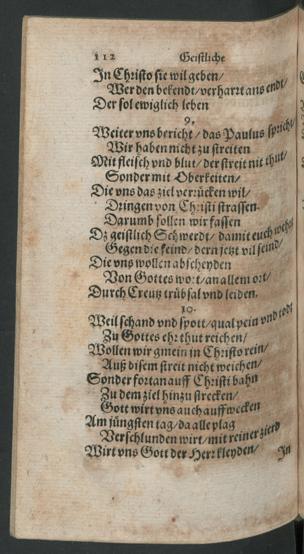 112 Geistliche
In Christo sie wil geben/
Wer den bekendt/verhart ans endt/
Der sol ewiglich leben
9.
Weiter vns bericht/das Paulus spricht
Wir haben nicht zu streiten
Mit fleisch vnd blut/der streit nit thut/
Sonder mit Oberkeiten/
Die vns das ziel verrücken wil/
Dringen von Christi strassen
Darumb sollen wir fassen
Dz geistlich Schwerdt/damit euch wehrt
Gegen die feind/dern jetzt vil seind/
Die vns wollen abscheyden
Von Gottes wort/an allem ort/
Durch Creutz trübsal vnd leiden.
10.
Weil schand vnd spott/qual pein vnd todt
Zu Gottes ehr thut reichen/
Wollen wir gmein in Christo rein/
Auß disem streit nicht weichen/
Sonder fortan auff Christi bahn
Zu dem ziel hinzu strecken/
Gott wirt vns auch auffwecken
Am jüngsten tag/da alle plag
Verschlunden wirt/mit reiner zierd
Wirt vns Gott der Herr kleyden/
In